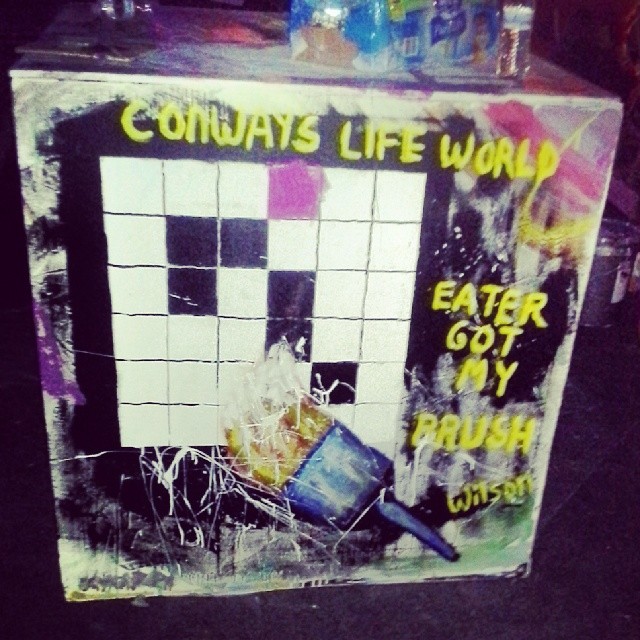 CONWAYS LIFE WORLD
EATER
GOT
MY
BRUSH
Wilson